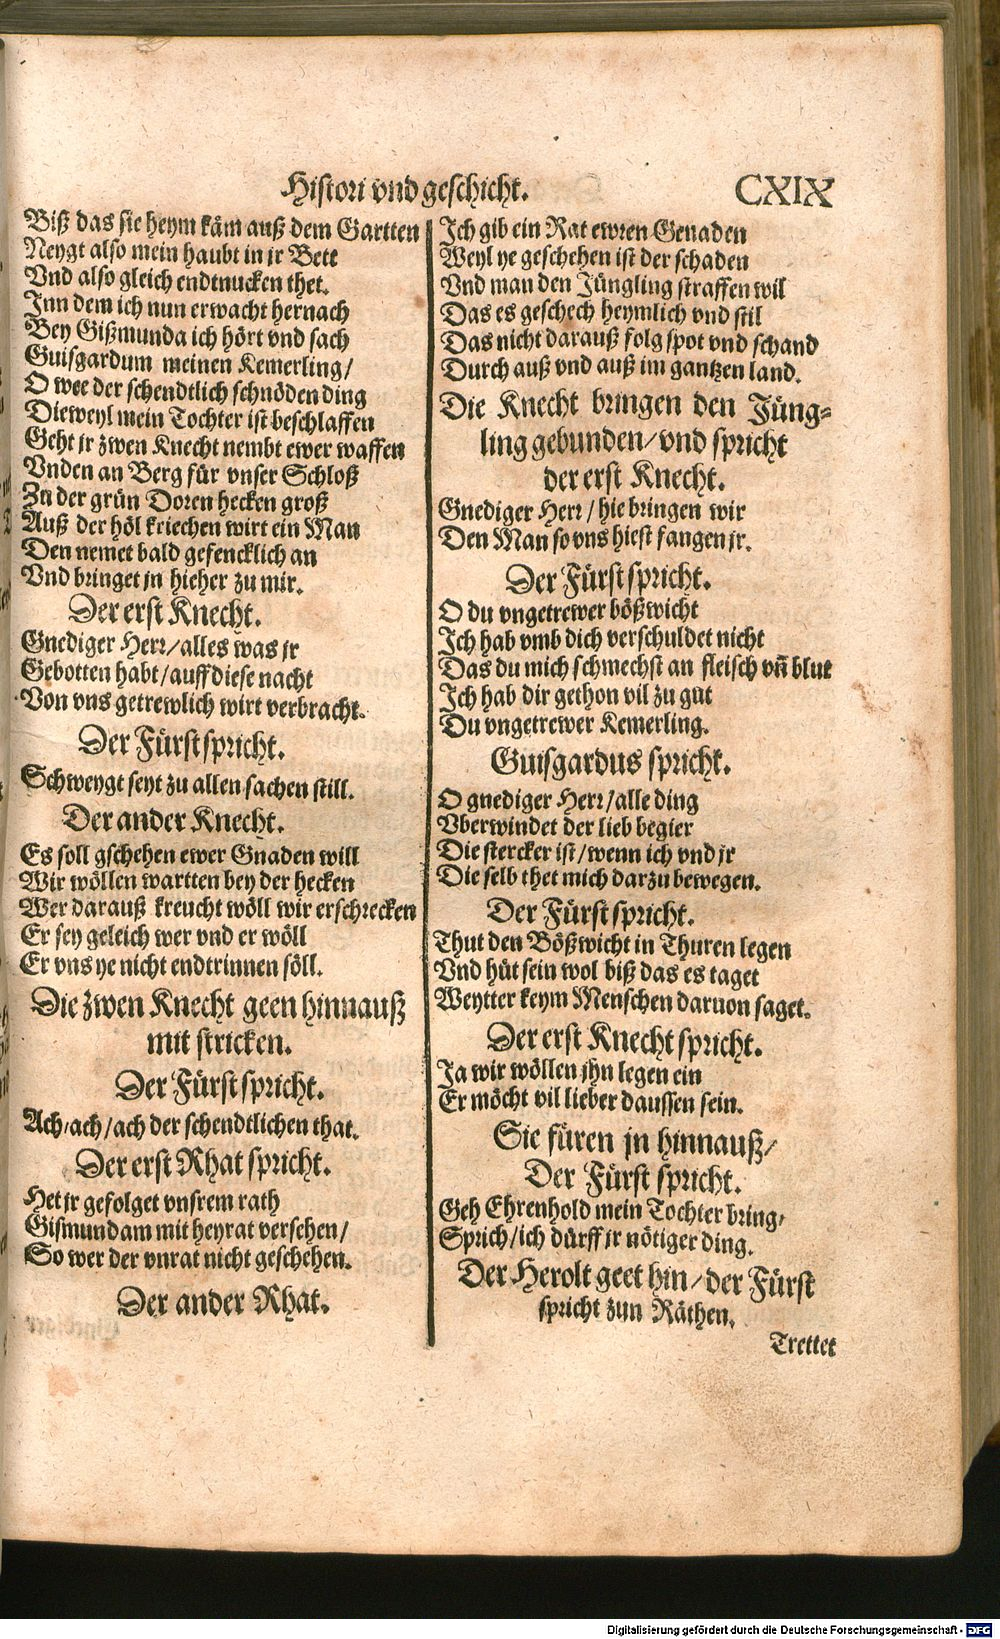 Histori vnd geschicht. CXIX
Biß das sie heym käm auß dem Gartten
Neygt also mein haubt in jr Bett
Vnd also gleich endtnucken thet.
Inn dem ich nun erwacht hernach
Bey Gißmunda ich hört vnd sach
Guisgardum meinen Kemerling/
O wee der schendtlich schnöden ding
Dieweyl mein Tochter ist beschlaffen
Geht jr zwen Knecht nembt ewer waffen
Vnden an Berg für vnser Schloß
Zu der grün Doren hecken groß
Auß der höl kriechen wirt ein Man
Den nemet bald gefencklich an
Vnd bringet jn hieher zu mir.
Der erst Knecht.
Gnediger Herr/alles was jr
Gebotten habt/auff diese nacht
Von vns getrewlich wirt verbracht.
Der Fürst spricht.
Schweygt seyt zu allen sachen still.
Der ander Knecht.
Es soll gschehen ewer Gnaden will
Wir wöllen wartten bey der hecken
Wer darauß kreucht wöll wir erschrecken
Er sey geleich wer vnd er wöll
Er vns ye nicht endtrinnen söll.
Die zwen Knecht geen hinnauß
mit stricken.
Der Fürst spricht.
Ach/ach/ach der schendtlichen that.
Der erst Rhat spricht.
Het jr gefolget vnsrem rath
Gismundam mit heyrat versehen/
So wer der vnrat nicht geschehen.
Der ander Rhat.
Ich gib ein Rat ewren Genaden
Weyl ye geschehen ist der schaden
Vnd man den Jüngling straffen wil
Das es geschech heymlich vnd stil
Das nicht darauß folg spot vnd schand
Durch auß vnd auß im gantzen land.
Die Knecht bringen den Jüng⸗
ling gebunden/vnd spricht
der erst Knecht.
Gnediger Herr/hie bringen wir
Den Man so vns hiest fangen jr.
Der Fürst spricht.
O du vngetrewer bößwicht
Ich hab vmb dich verschuldet nicht
Das du mich schmechst an fleisch vñ blut
Ich hab dir gethon vil zu gut
Du vngetrewer Kemerling.
Guisgardus spricht.
O gnediger Herr/alle ding
Vberwindet der lieb begier
Die stercker ist/wenn ich vnd jr
Die selb thet mich darzu bewegen.
Der Fürst spricht.
Thut den Bößwicht in Thuren legen
Vnd hüt sein wol biß das es taget
Weytter keym Menschen daruon saget.
Der erst Knecht spricht.
Ja wir wöllen jhn legen ein
Er möcht vil lieber daussen sein.
Sie füren jn hinnauß/
Der Fürst spricht.
Geh Ehrenhold mein Tochter bring/
Sprich/ich dürff jr nötiger ding.
Der Herolt geet hin/der Fürst
spricht zun Räthen.
Trettet
Digitalisierung gefördert durch die Deutsche Forschungsgemeinschaft - DFG